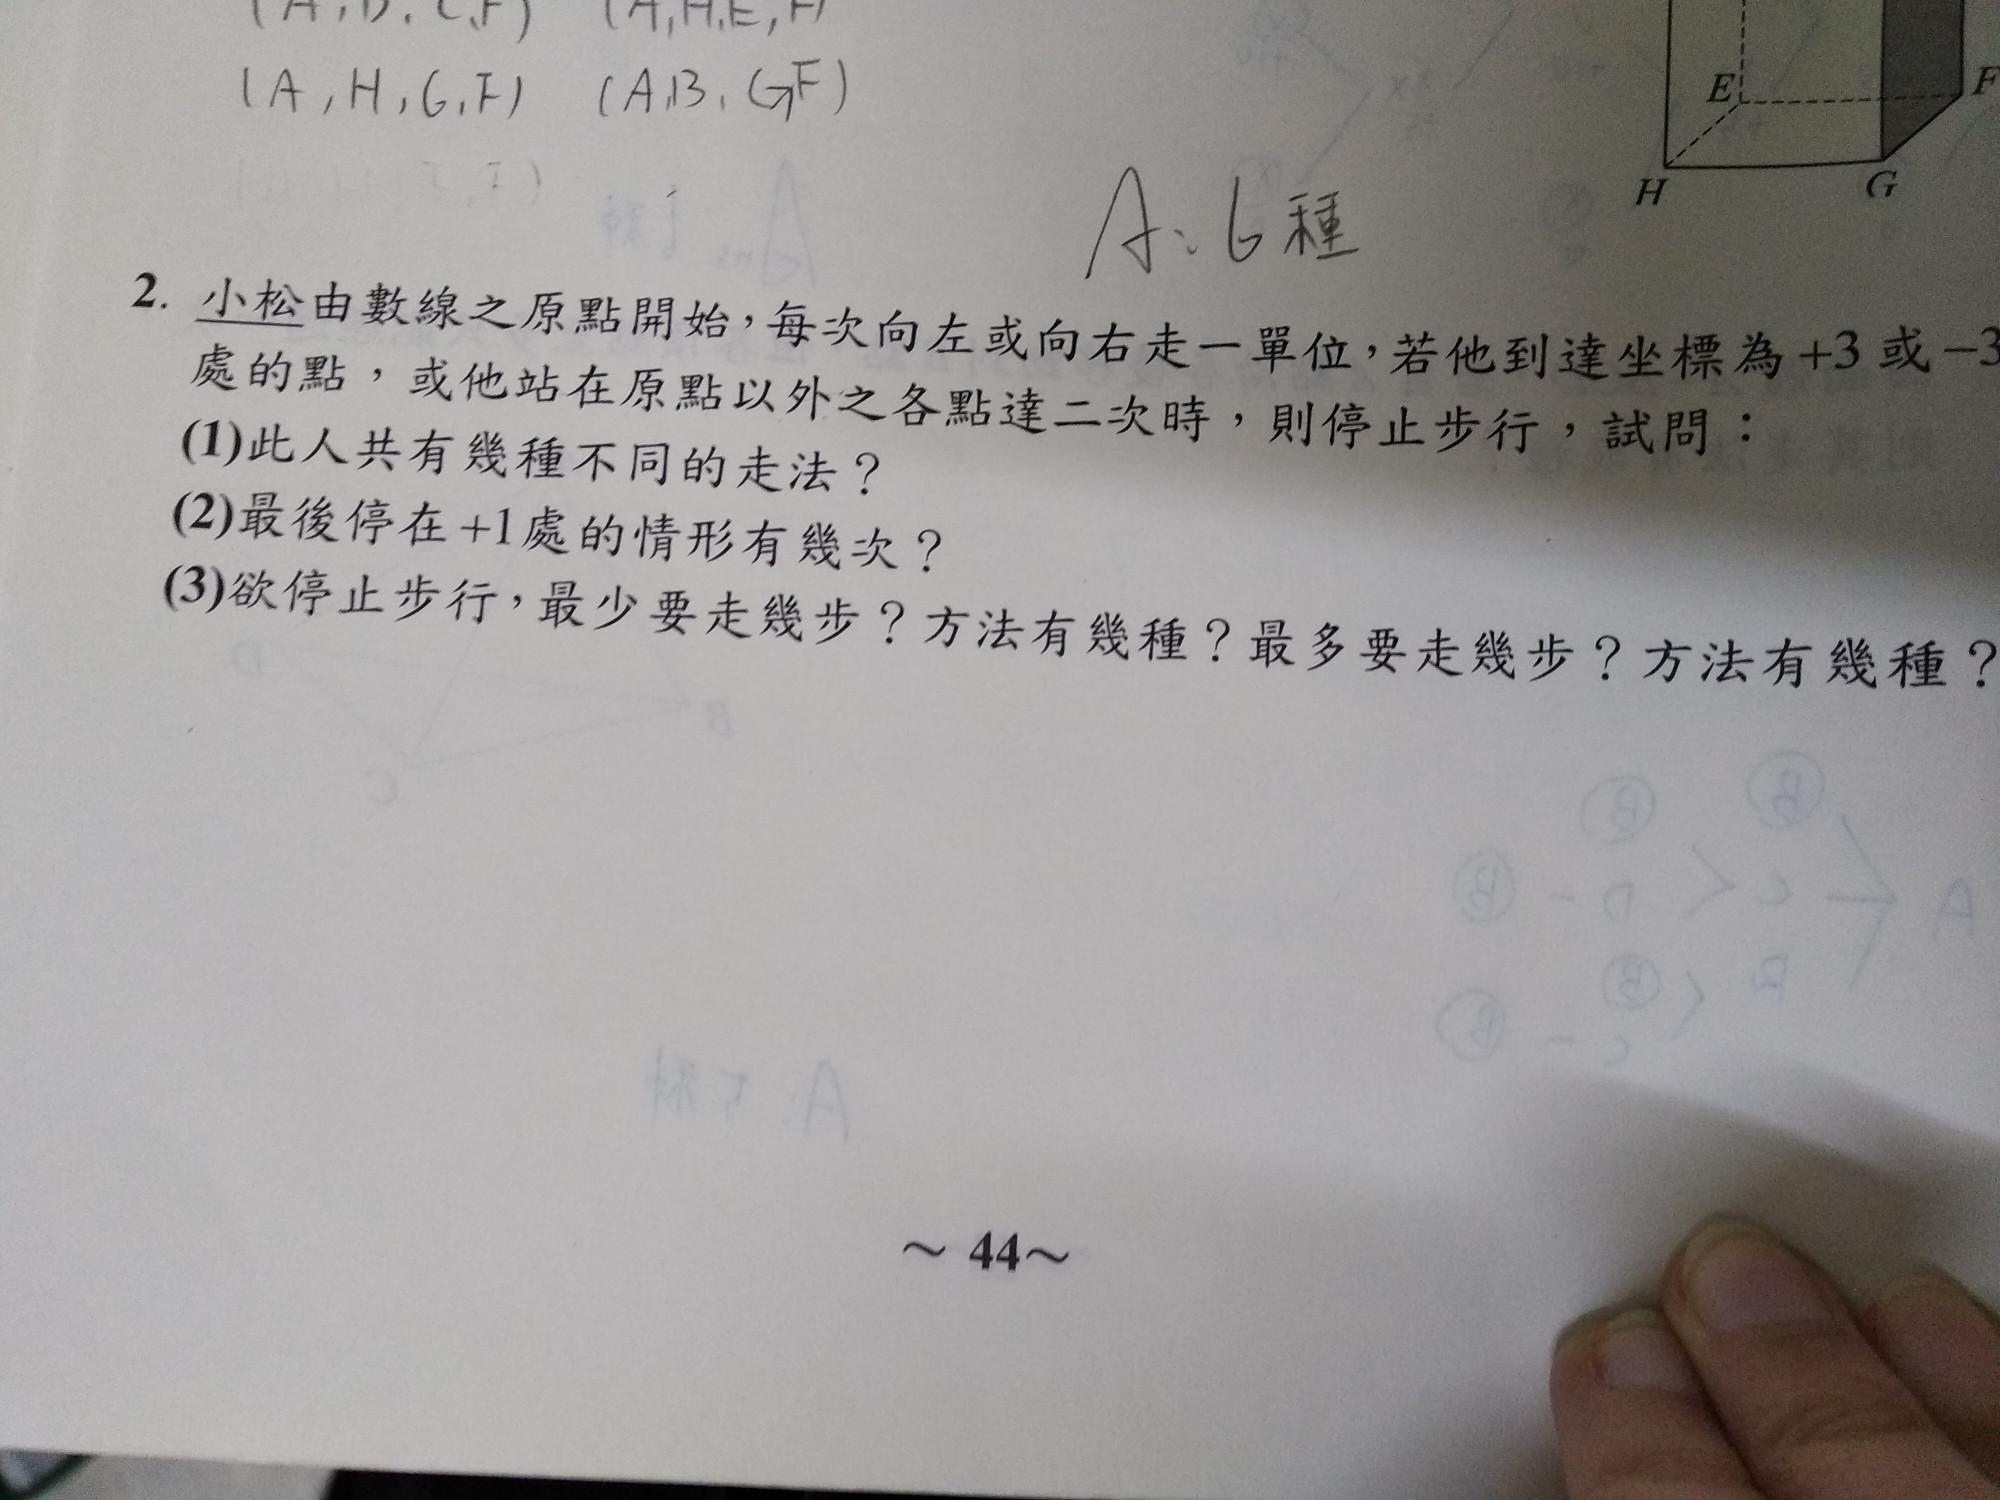 (A,B,C,F) (A,H,E,F)
(A,H,G,F) (A,B,G,F)
E
F
H
G
A:6種
2. 小松由數線之原點開始,每次向左或向右走一單位,若他到達坐標為+3或-3
處的點,或他站在原點以外之各點達二次時,則停止步行,試問:
(1)此人共有幾種不同的走法?
(2)最後停在+1處的情形有幾次?
(3)欲停止步行,最少要走幾步?方法有幾種?最多要走幾步?方法有幾種?
~ 44~